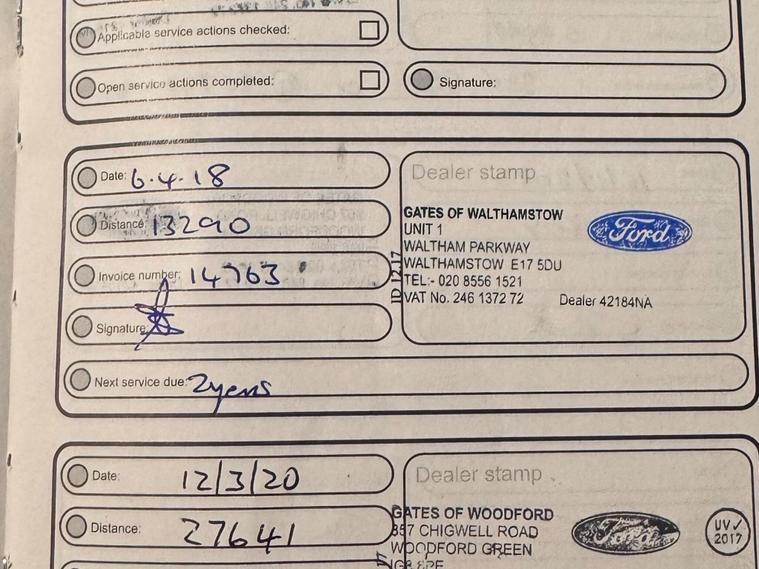 Applicable service actions checked:
Open service actions completed:
Signature:
Date: 6.4.18
Distance: 13290
Invoice number: 14763
Signature:
Next service due: 2 years
Dealer stamp
GATES OF WALTHAMSTOW
UNIT 1
WALTHAM PARKWAY
WALTHAMSTOW E17 5DU
TEL:- 020 8556 1521
VAT No. 246 1372 72
Dealer 42184NA
Ford
ID 12.17
Date: 12/3/20
Distance: 27641
Dealer stamp
GATES OF WOODFORD
357 CHIGWELL ROAD
WOODFORD GREEN
Ford
UV✓
2017